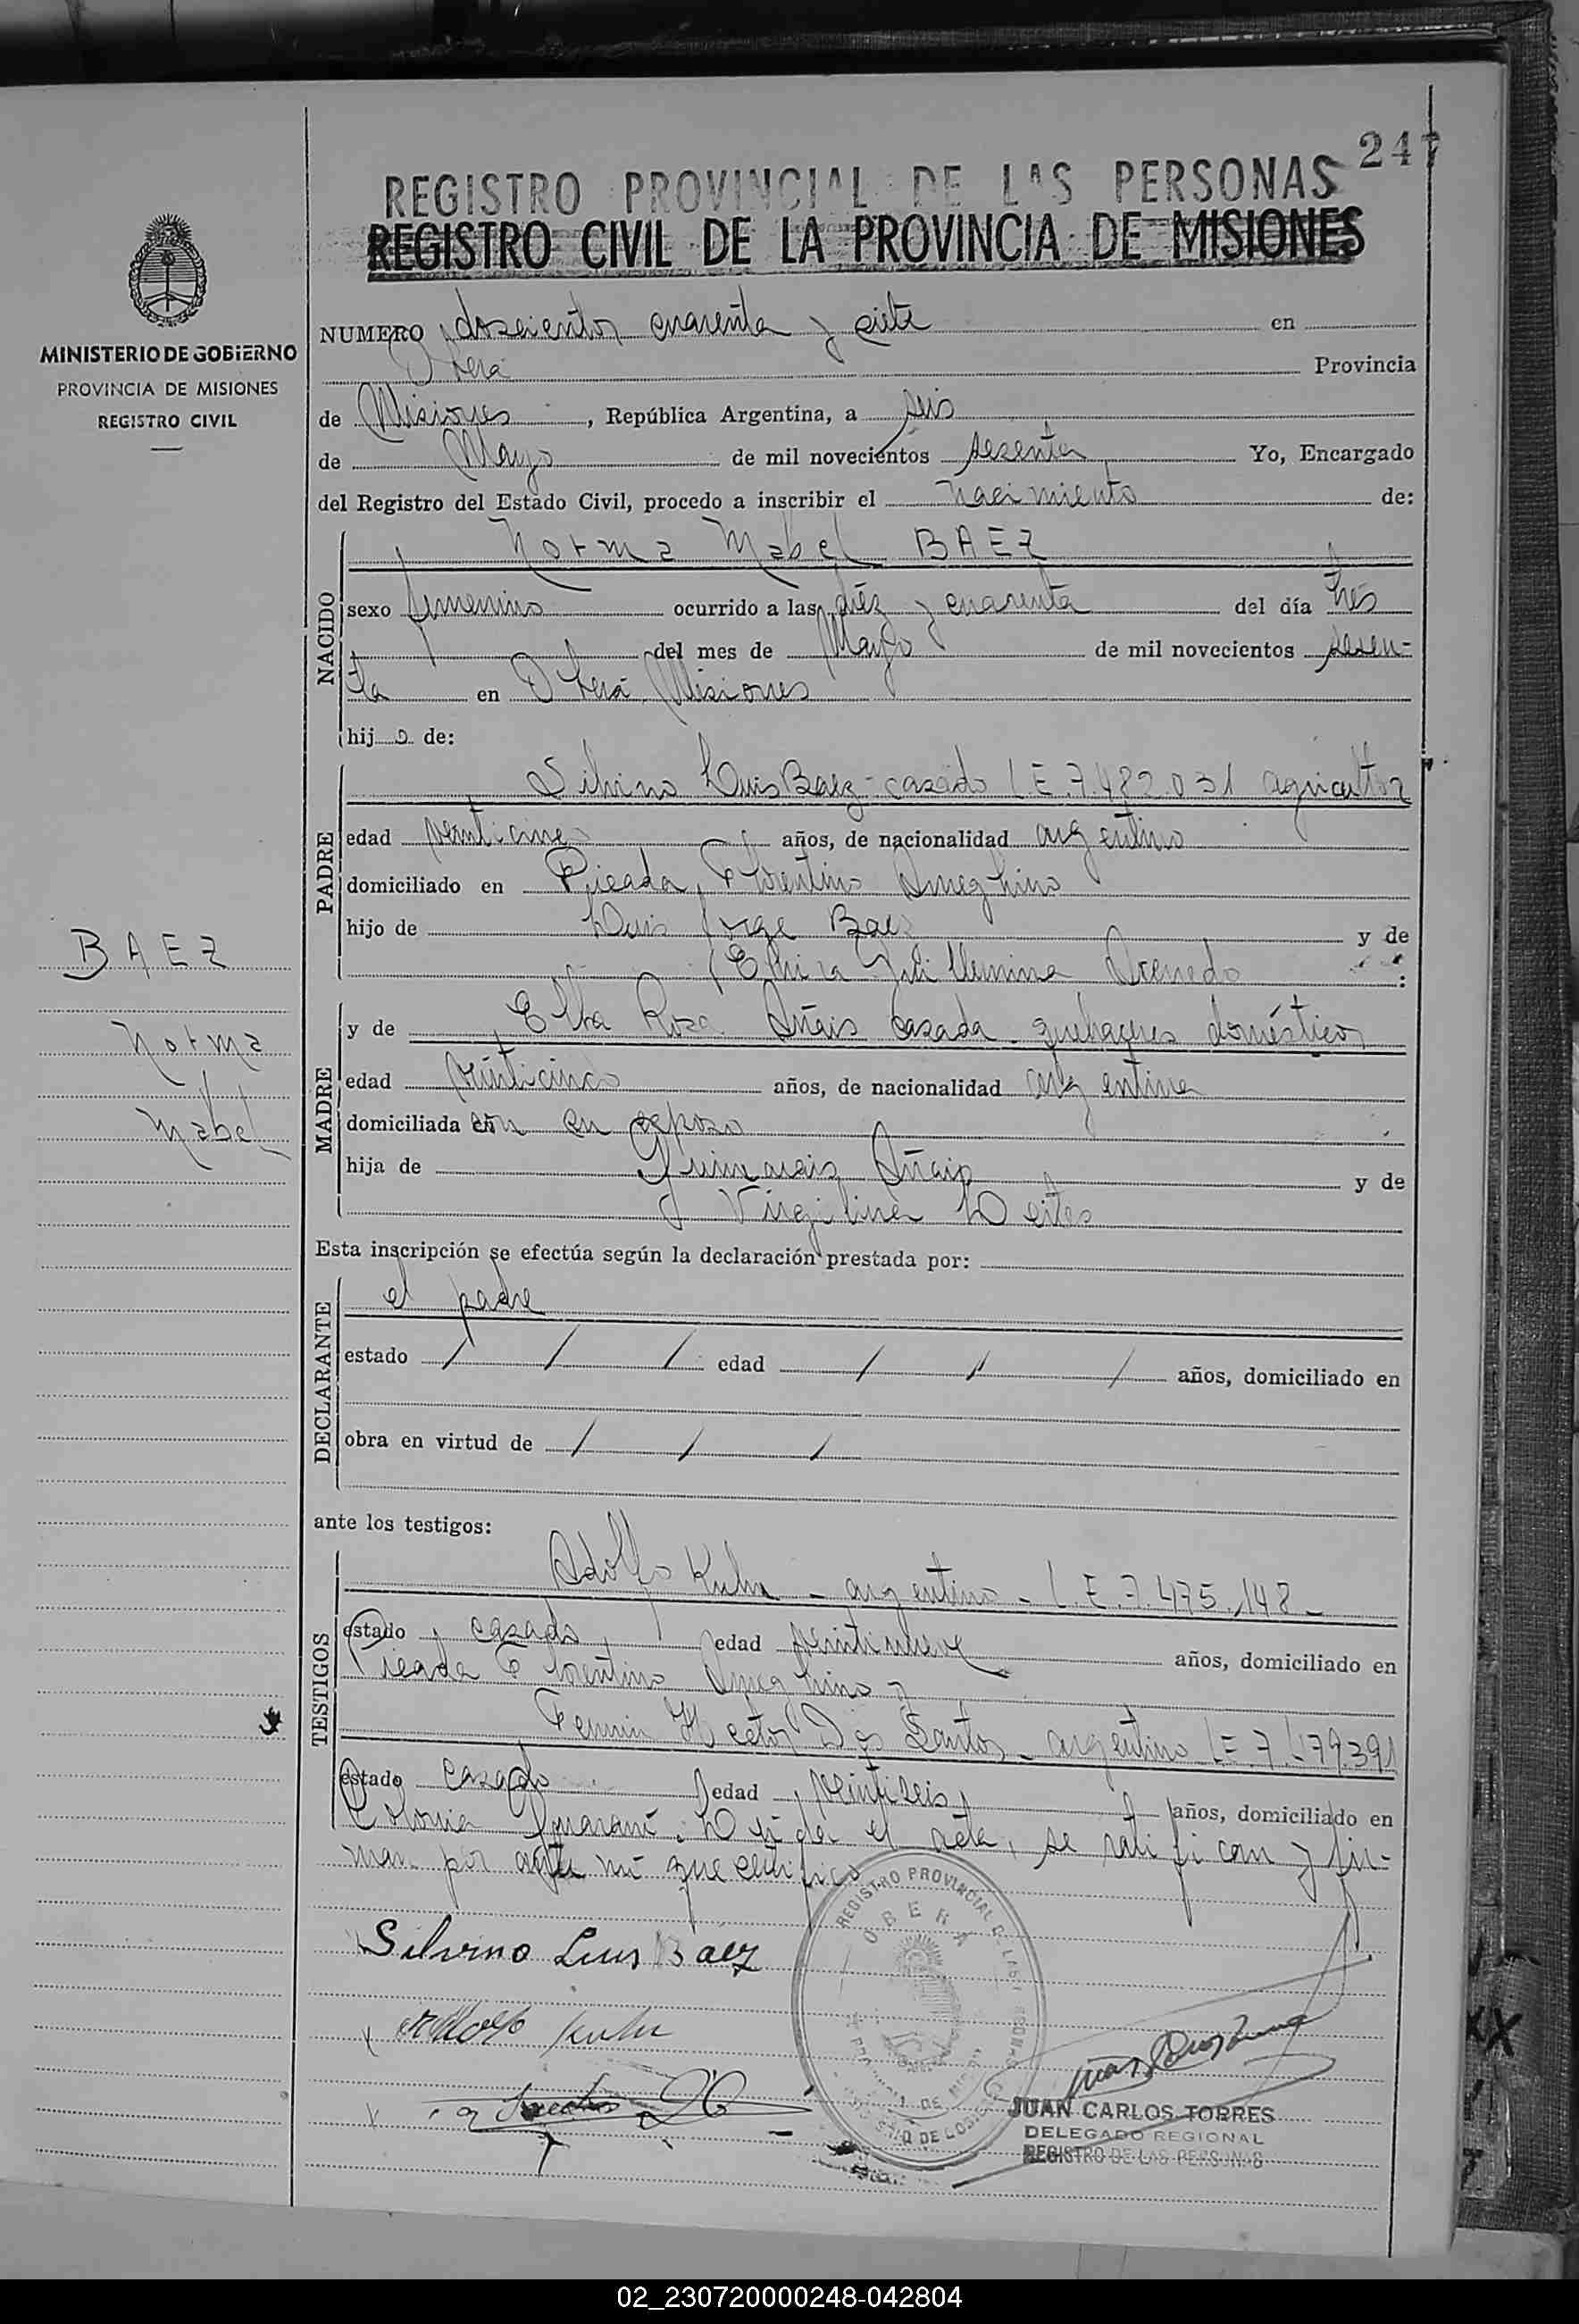 247
REGISTRO PROVINCIAL DE LAS PERSONAS
REGISTRO CIVIL DE LA PROVINCIA DE MISIONES
MINISTERIO DE GOBIERNO
PROVINCIA DE MISIONES
REGISTRO CIVIL
NUMERO doscientos cuarenta y siete en
Oberá Provincia
de Misiones, República Argentina, a seis
de Mayo de mil novecientos sesenta Yo, Encargado
del Registro del Estado Civil, procedo a inscribir el nacimiento de:
NACIDO
Norma Mabel BAEZ
sexo femenino ocurrido a las diéz y cuarenta del día trés
del mes de Mayo de mil novecientos sesen-
ta en Oberá Misiones
hij a de:
PADRE
Silvino Luis Baez - casado L.E.7.482.031 agricultor
edad veinticinco años, de nacionalidad argentino
domiciliado en Picada Florentino Ameghino
hijo de Luis Jorge Baez y de
Elvira Guillermina
BAEZ
Norma
Mabel
MADRE
y de Elba Rosa casada quehaceres domésticos
edad veinticinco años, de nacionalidad argentina
domiciliada con su esposo
hija de y de
Virgilina
Esta inscripción se efectúa según la declaración prestada por:
DECLARANTE
el padre
estado / / / edad / / / años, domiciliado en
obra en virtud de / / /
ante los testigos:
TESTIGOS
Adolfo Kuhn - argentino - L.E.7.475.148 -
estado casado edad veintinueve años, domiciliado en
Picada Florentino Ameghino y
Fermin Hector Dos Santos - argentino L.E.7.479.391
estado casado edad veintiseis años, domiciliado en
Colonia Guaraní. Leída el acta, se ratifican y fir-
man por ante mí que certifico
REGISTRO PROVINCIAL DE LAS PERSONAS
OBERA
Silvino Luis Baez
Adolfo Kuhn
JUAN CARLOS TORRES
DELEGADO REGIONAL
REGISTRO DE LAS PERSONAS
02_230720000248-042804